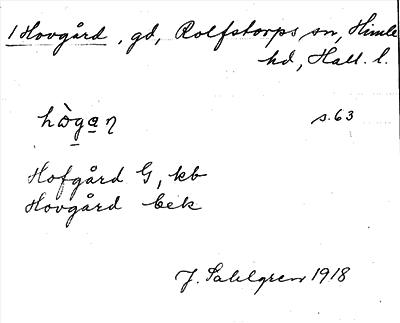 1 Hovgård, gd, Rolfstorps sn, Himle
hd, Hall. l.
hògaņ s. 63
Hofgård G, kb
Hovgård bek
J. Sahlgren 1918